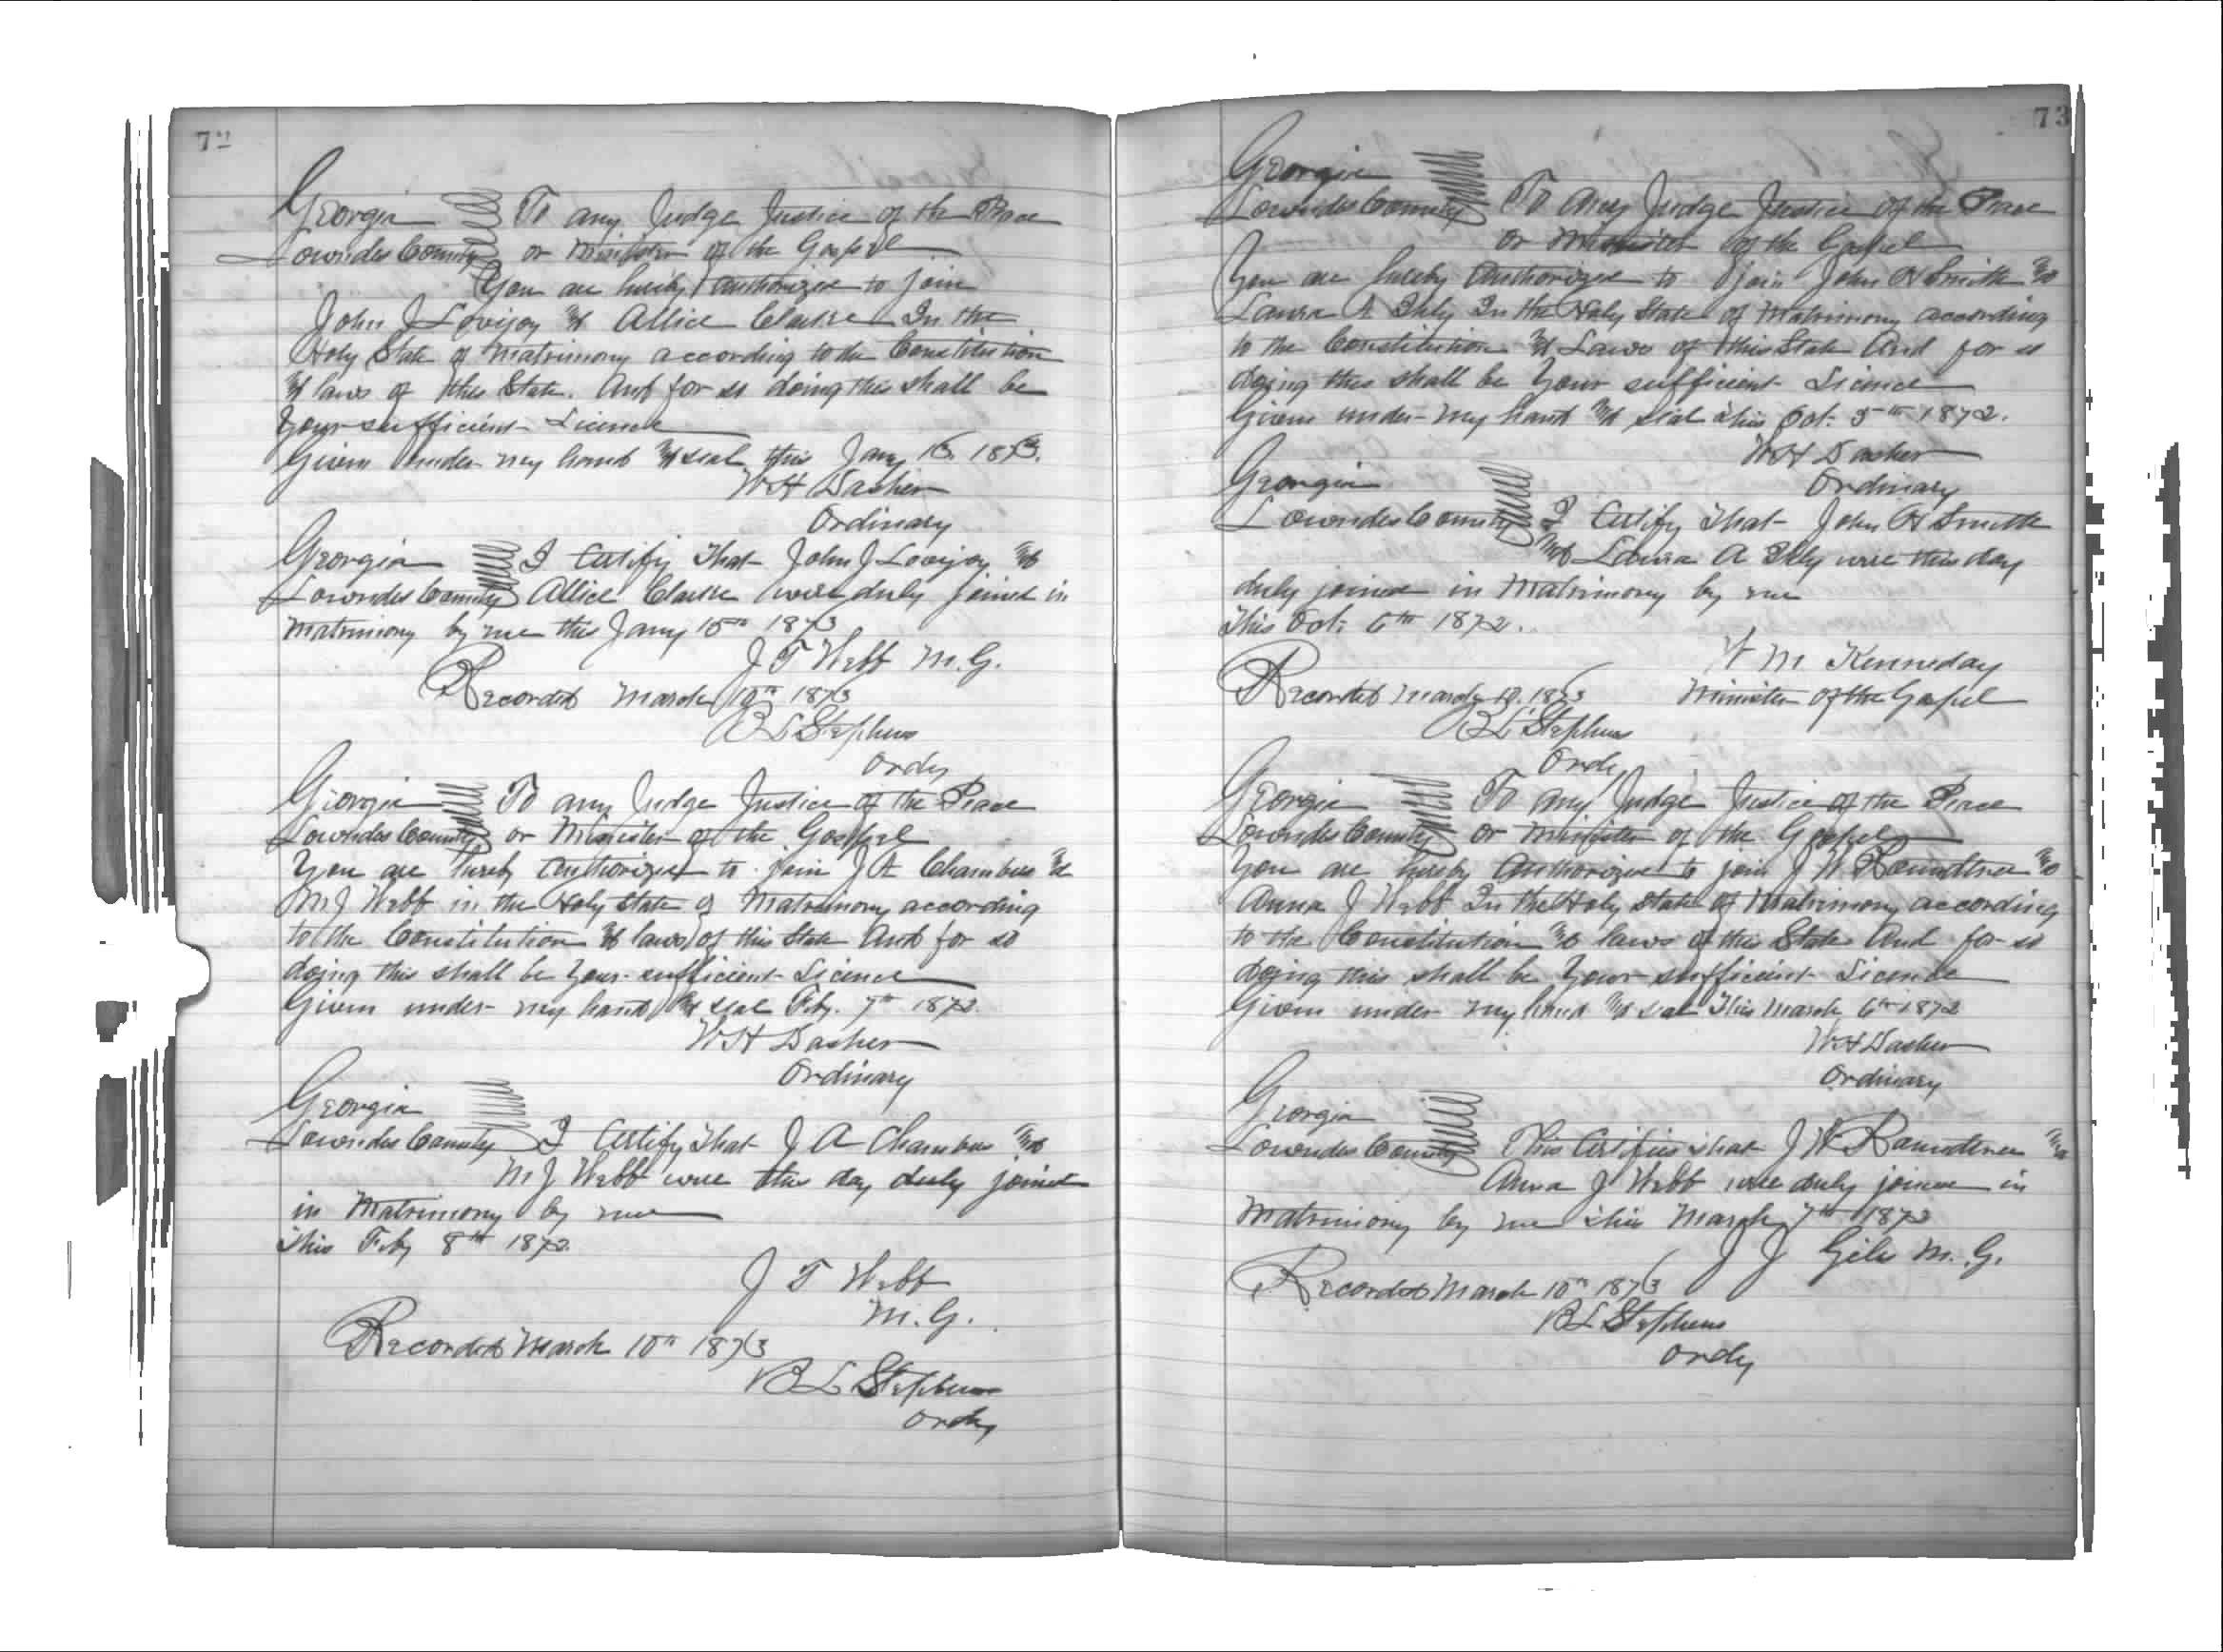 72
Georgia To any Judge Justice of the Peace
Lowndes County or Minister of the Gospel
You are hereby authorized to join
John J Lovejoy & Allice Clarke In the
Holy State of Matrimony according to the Constitution
& laws of this State. And for so doing this shall be
Your sufficient License
Given under my hand & seal this Jany 15 1873.
W H Dasher
Ordinary
Georgia I Certify That John J Lovejoy &
Lowndes County Allice Clarke were duly joined in
Matrimony by me this Jany 15th 1873
J T Webb M.G.
Recorded March 10th 1873
B L Stephens
Ordy
Georgia To any Judge Justice of the Peace
Lowndes County or Minister of the Gospel
You are hereby Authorized to join J A Chambers &
M J Webb in the Holy State of Matrimony according
to the Constitution & laws of this State And for so
doing this shall be Your sufficient License
Given under my hand & seal Feby. 7th 1872.
W H Dasher
Ordinary
Georgia
Lowndes County I Certify That J A Chambers &
M J Webb were this day duly joined
in Matrimony by me
This Feby 8th 1872.
J T Webb
M.G.
Recorded March 10th 1873
B L Stephens
Ordy
73
Georgia
Lowndes County To Any Judge Justice of the Peace
or Minister of the Gospel
You are hereby Authorized to join John H Smith &
Laura A In the Holy State of Matrimony according
to the Constitution & Laws of this State And for so
doing this shall be Your sufficient License
Given under my hand & seal this Oct. 5th 1872.
W H Dasher
Ordinary
Georgia
Lowndes County I Certify That John H Smith
& Laura A were this day
duly joined in Matrimony by me
This Oct. 6th 1872.
M Kenneday
Minister of the Gospel
Recorded March 10. 1873
B L Stephens
Ordy
Georgia To Any Judge Justice of the Peace
Lowndes County or Minister of the Gospel
You are hereby Authorized to join J W Roundtree &
Anna J Webb In the Holy State of Matrimony according
to the Constitution & laws of this State And for so
doing this shall be Your sufficient License
Given under my hand & seal This March 6th 1872
W H Dasher
Ordinary
Georgia
Lowndes County This Certifies that J W Roundtree &
Anna J Webb were duly joined in
Matrimony by me this March 7th 1872
J J Giles M.G.
Recorded March 10th 1873
B L Stephens
Ordy